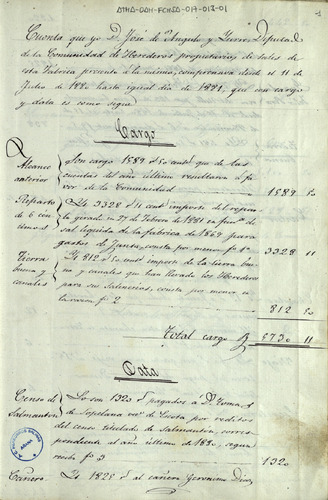 ATHA-DAH-FCMSA-017-012-01
Cuenta que yo D. de Angulo y Diputado
de la Comunidad de Herederos propietarios de sales de
esta Fabrica presento a la misma, comprensiva desde el 11 de
Julio de 1880 hasta igual dia de 1881, que con cargo
y data es como sigue
Cargo
Alcance anterior
Son cargo 1589 50 cent que de las
cuentas del año ultimo resultaron a fa
vor de la Comunidad
1589 50
Reparto de 6 cen
Yt 3328 11 cent importe del repar
to girado en 27 de Febrero de 1881 en
sal liquida de la fabrica de 1869 para
gastos de Junta, consta por menor fº 1º
3328 11
Tierra buena y canales
Yt 812 50 cent importe de la tierra bue
na y canales que han llevado los Herederos
para sus Salinerias, consta por menor
fº 2
812 50
Total cargo 5730 11
Data
Censo de Salmanton
Lo son 1320 pagados a D. Tomas
de Sopelana vº de por reditos
del censo titulado de Salmanton, corres
pondiente al año ultimo de 1880, segun
recibo fº 3
1320
Cañero
Yt 1825 al cañero Geronimo